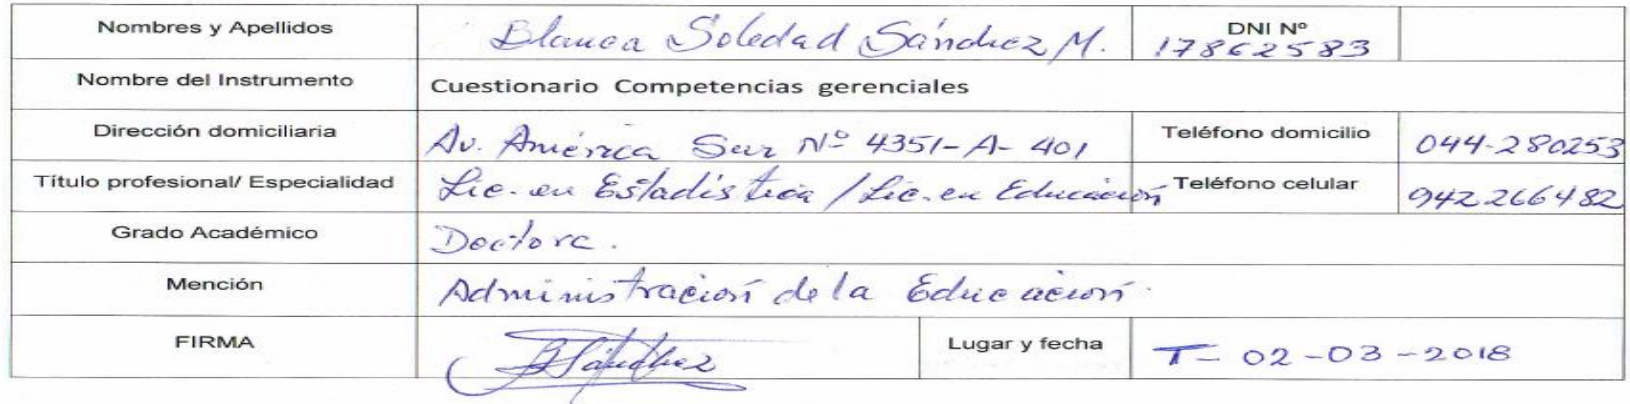 Nombres y Apellidos Blanca Soledad Sánchez M. DNI Nº 17862583
Nombre del Instrumento Cuestionario Competencias gerenciales
Dirección domiciliaria Av. América Sur Nº 4351-A-401 Teléfono domicilio 044-280253
Título profesional/ Especialidad Lic. en Estadística / Lic. en Educación Teléfono celular 942266482
Grado Académico Doctora.
Mención Administración de la Educación.
FIRMA BSánchez Lugar y fecha T- 02-03-2018